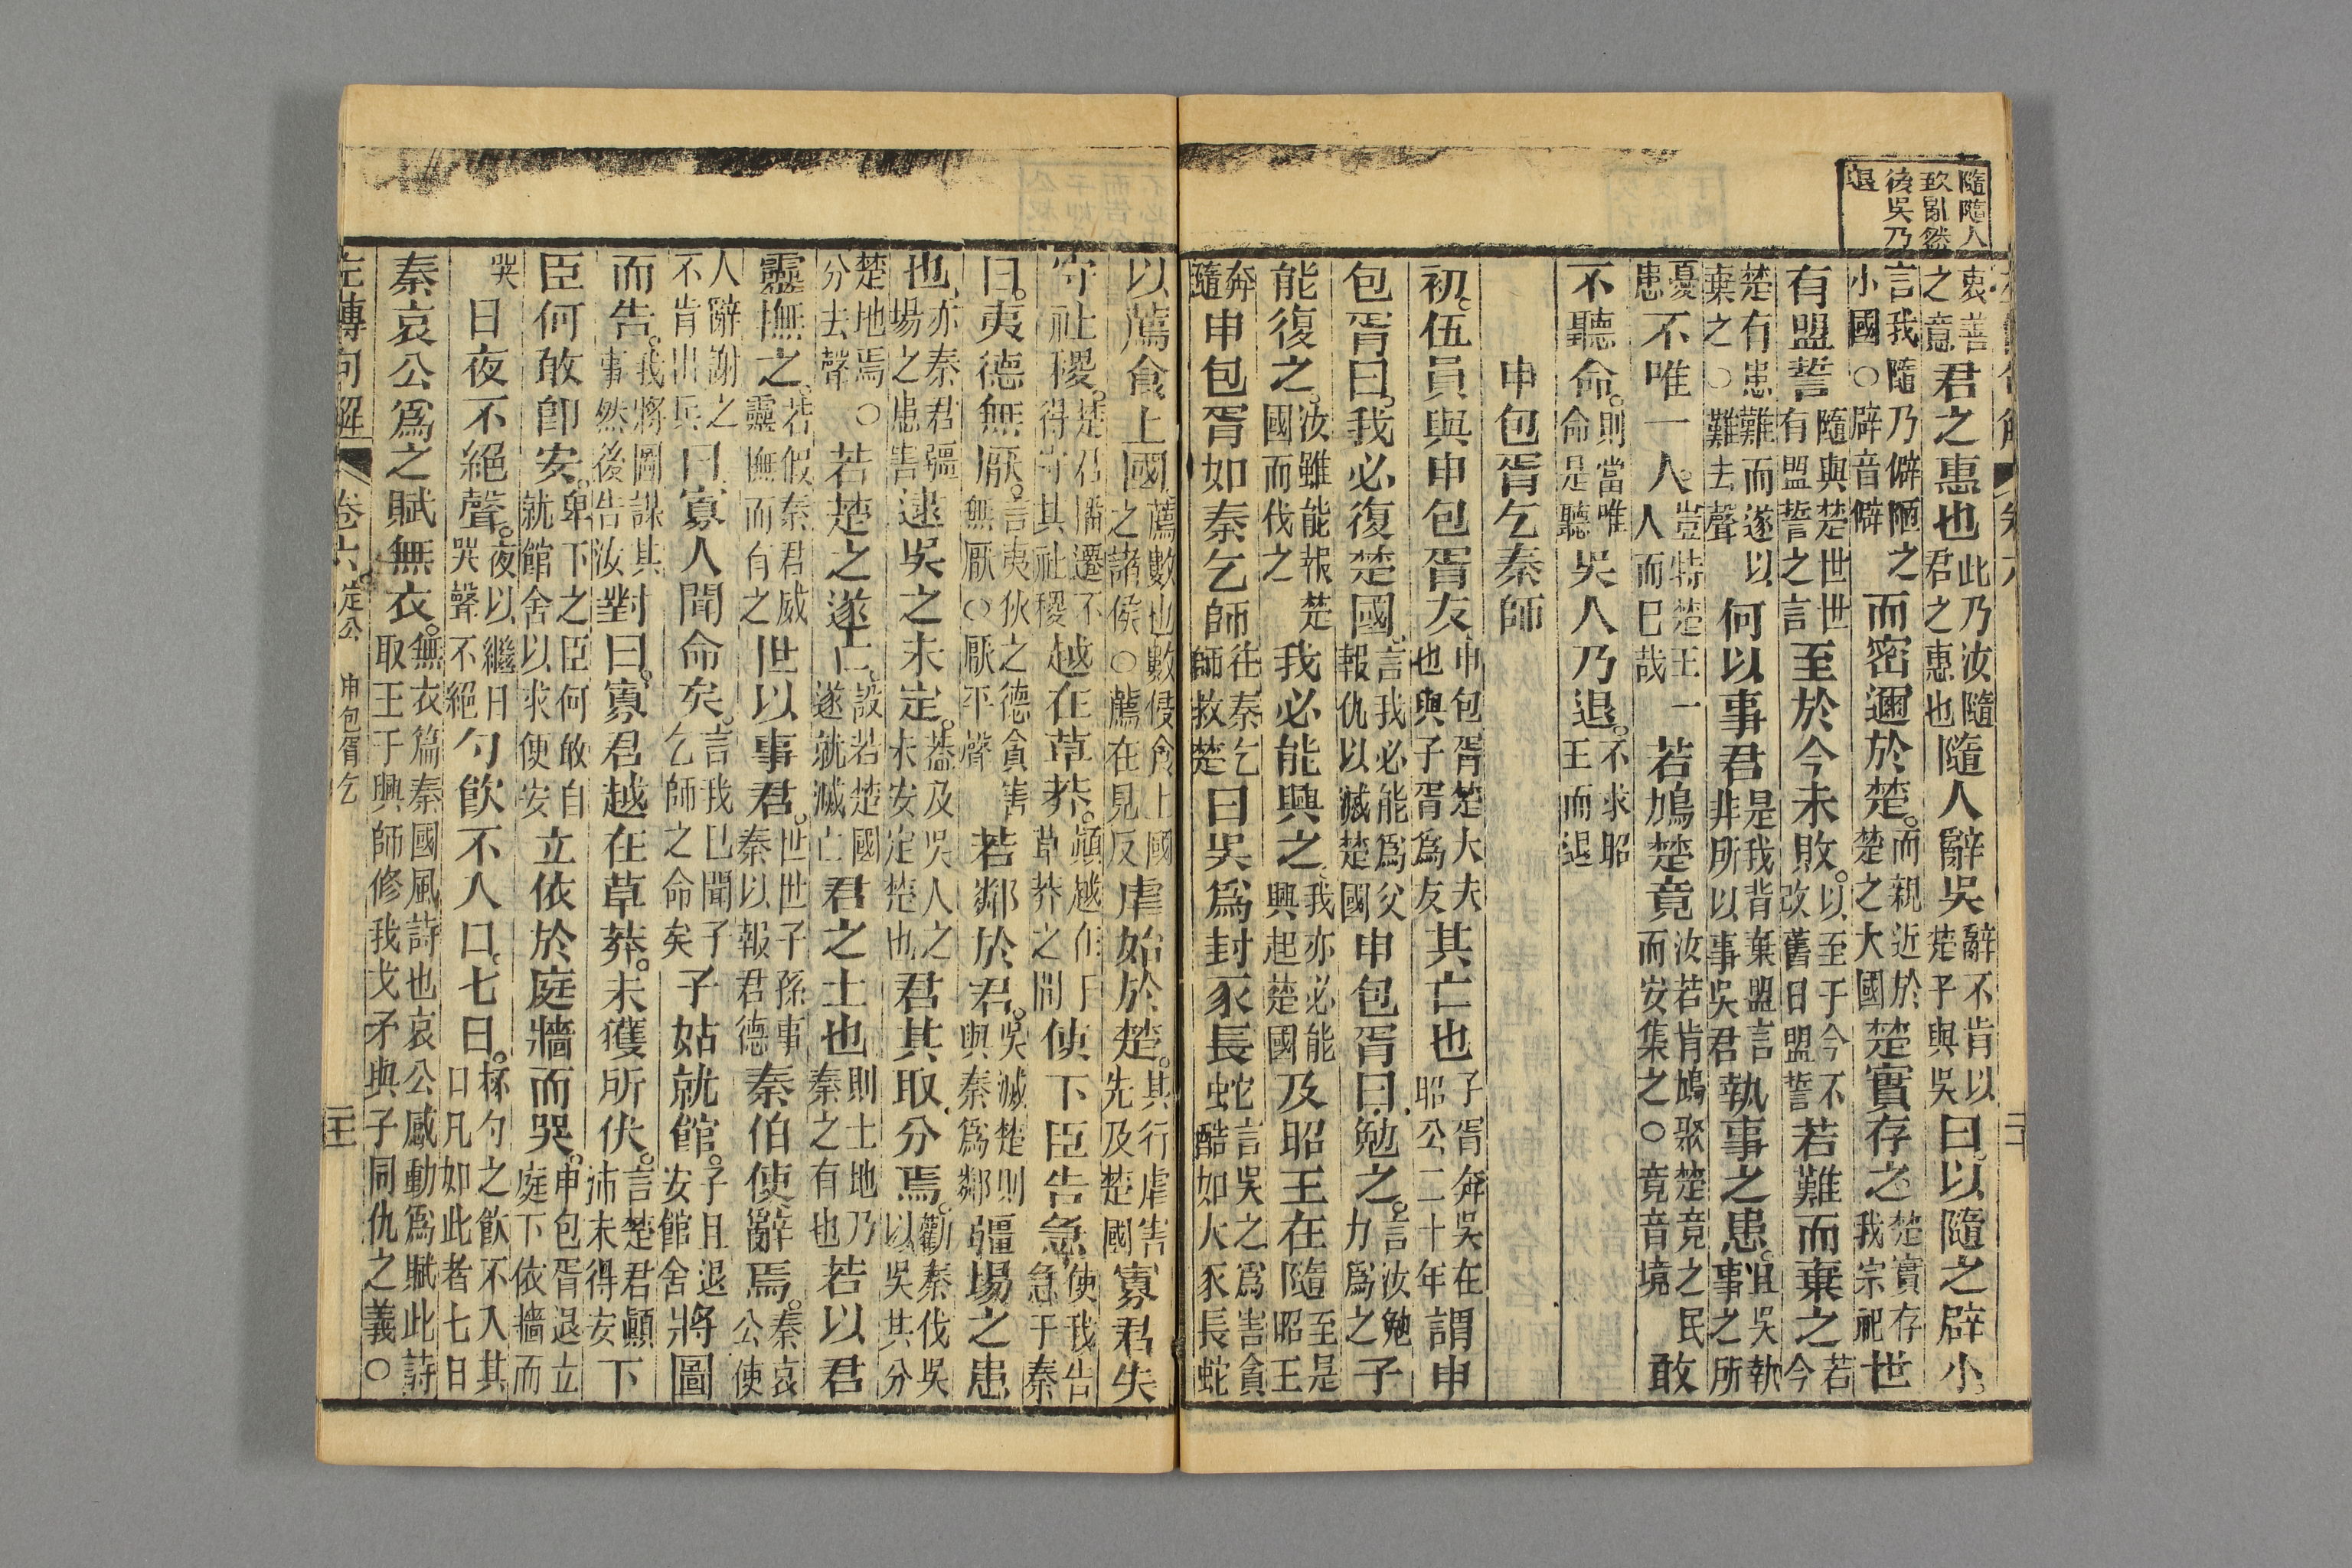 隨隨人
致亂然
後吳乃
退
衷善之意君之惠也此乃汝隨君之惠也隨人辭吳辭不肯以楚平與吳曰。以隨之辟小。
言我隨乃僻陋之小國○辟音僻而密邇於楚。而親近於楚之大國楚實存之楚實存我宗祀世
有盟誓隨與楚世世有盟誓之言至於今未敗。以至于今不改舊日盟誓若難而棄之若今
楚有患難而遂以棄之○難去聲何以事君是我背棄盟言非所以事吳君執事之患。且吳執事之所
憂患不唯一人。豈特楚王一人而已哉若鳩楚竟汝若肯鳩聚楚竟之民而安集之○竟音境敢
不聽命。則當唯命是聽吳人乃退。不求昭王而退
申包胥乞秦師
初。伍員與申包胥友申包胥楚大夫也與子胥爲友其亡也子胥奔吳在昭公二十年謂申
包胥曰。我必復楚國。言我必能爲父報仇以滅楚國申包胥曰。勉之。言汝勉力爲之子
能復之。汝雖能報楚國而伐之我必能興之。我亦必能興起楚國及昭王在隨至是昭王
奔隨申包胥如秦乞師往秦乞師救楚曰吳爲封豕長蛇言吳之爲害貪酷如大豕長蛇
以薦食上國薦數也數侵食上國之諸侯○薦在見反虐始於楚。其行虐害先及楚國寡君失
守社稷。楚君播遷不得守其社稷越在草莽。顛越在于草莽之間使下臣告急。使我告急于秦
曰。夷德無厭。言夷狄之德貪害無厭○厭平聲若鄰於君。吳滅楚則與秦爲鄰疆場之患
也。亦秦君疆場之患害逮吳之未定。葢及吳人之未安定楚也君其取分焉。勸秦伐吳以吳共分
楚地焉○分去聲若楚之遂亡。設若楚國遂就滅亡君之土也則土地乃秦之有也若以君
靈撫之。若假秦君威靈撫而有之世以事君。世世子孫事秦以報君德秦伯使辭焉。秦哀公使
人辭謝之不肯出兵曰寡人聞命矣。言我已聞子乞師之命矣子姑就館。子且退安館舍將圖
而告。我將圖謀其事然後告汝對曰。寡君越在草莽。未獲所伏。言楚君顚沛未得安下
臣何敢卽安。卑下之臣何敢自就館舍以求便安立依於庭牆而哭。申包胥退立庭下依牆而
哭日夜不絕聲。夜以繼日哭聲不絕勺飲不入口。七日。抔勺之飲不入其口凡如此者七日
秦哀公爲之賦無衣。無衣篇秦國風詩也哀公感動爲賦此詩取王于興師修我戈矛與子同仇之義○
左傳句解 卷六 定公 申包胥乞 二十